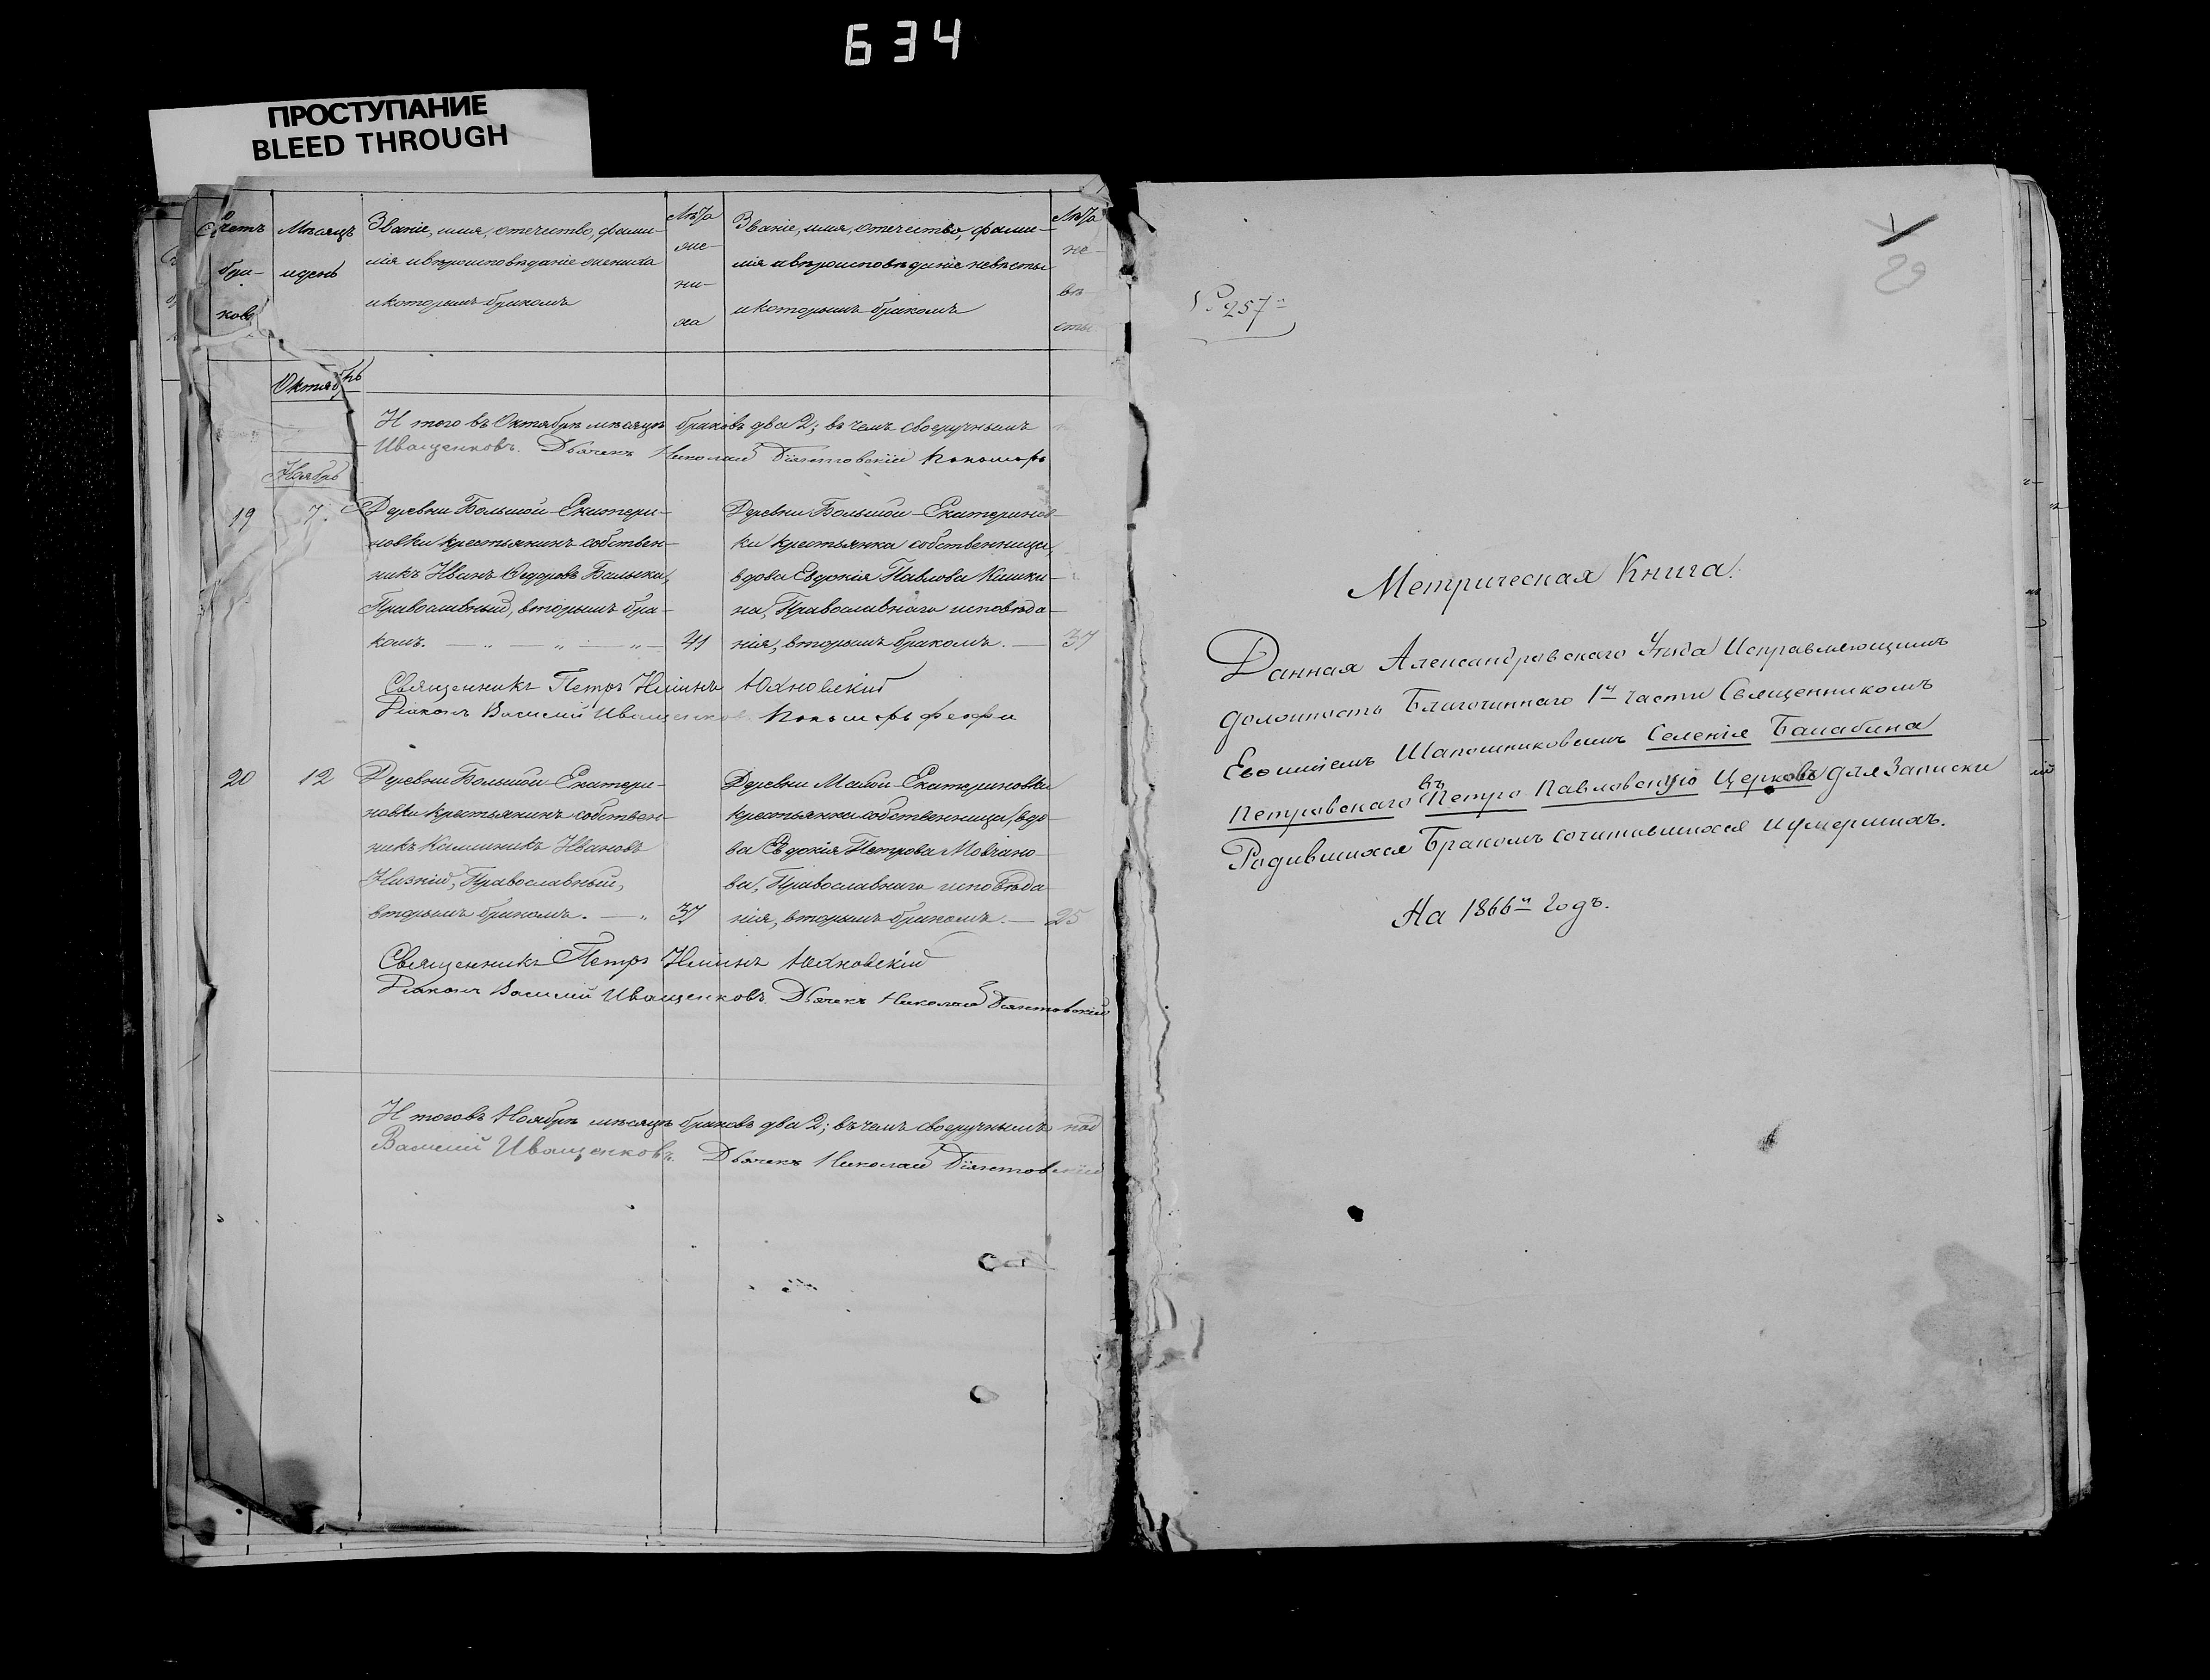 634
ПРОСТУПАНИЕ
BLEED THROUGH
Счетъ бра-ковъ
Мѣсяцъ и день
Званіе, имя, отечество, фами-
лія и вѣроисповѣданіе жениха
и которымъ бракомъ
Лѣта же-ни-ха
Званіе, имя, отечество, фами-
лія и вѣроисповѣданіе невѣсты
и которымъ бракомъ
Лѣта не-вѣ-сты
Октябрь
И того въ Октябрѣ мѣсяцѣ браковъ два 2; въ чемъ своеручнымъ
Иващенковъ. Дьячекъ Николай Понамарь
Ноябрь
19 7.
Деревни Большой-Екатери-
новки крестьянинъ собствен-
никъ Иванъ Ѳедоровъ Балыка,
Православный, вторымъ бра-
комъ. 41
Деревни Большой-Екатеринов-
ки крестьянка собственница,
вдова Евдокія Павлова Кишки-
на, Православнаго исповѣда-
нія, вторымъ бракомъ. 37
Священникъ Петръ Юхновскій
Діаконъ Василій Иващенковъ Понамарь Феофи
20 12
Деревни Большой-Екатери-
новки крестьянинъ собствен-
никъ Калинникъ Ивановъ
Низкій, Православный,
вторымъ бракомъ. 37
Деревни Малой-Екатериновки
крестьянка собственница, вдо-
ва Евдокія Петрова Мовчано-
ва, Православнаго исповѣда-
нія, вторымъ бракомъ. 25
Священникъ Петръ Юхновскій
Діаконъ Василій Иващенковъ. Дьячекъ Николай
И того въ Ноябрѣ мѣсяцѣ браковъ два 2; въ чемъ своеручнымъ под
Василій Иващенковъ. Дьячекъ Николай
№ 257
29
Метрическая Книга.
Данная Александровскаго Уѣзда Исправляющимъ
должность Благочиннаго 1й части Священникомъ
Евѳиміемъ Шапошниковымъ Селенія Балабина
Петровскаго въ Петро Павловскую Церковь для Записки
Родившихся Бракомъ сочитавшихся и умершихъ.
На 1866й Годъ.